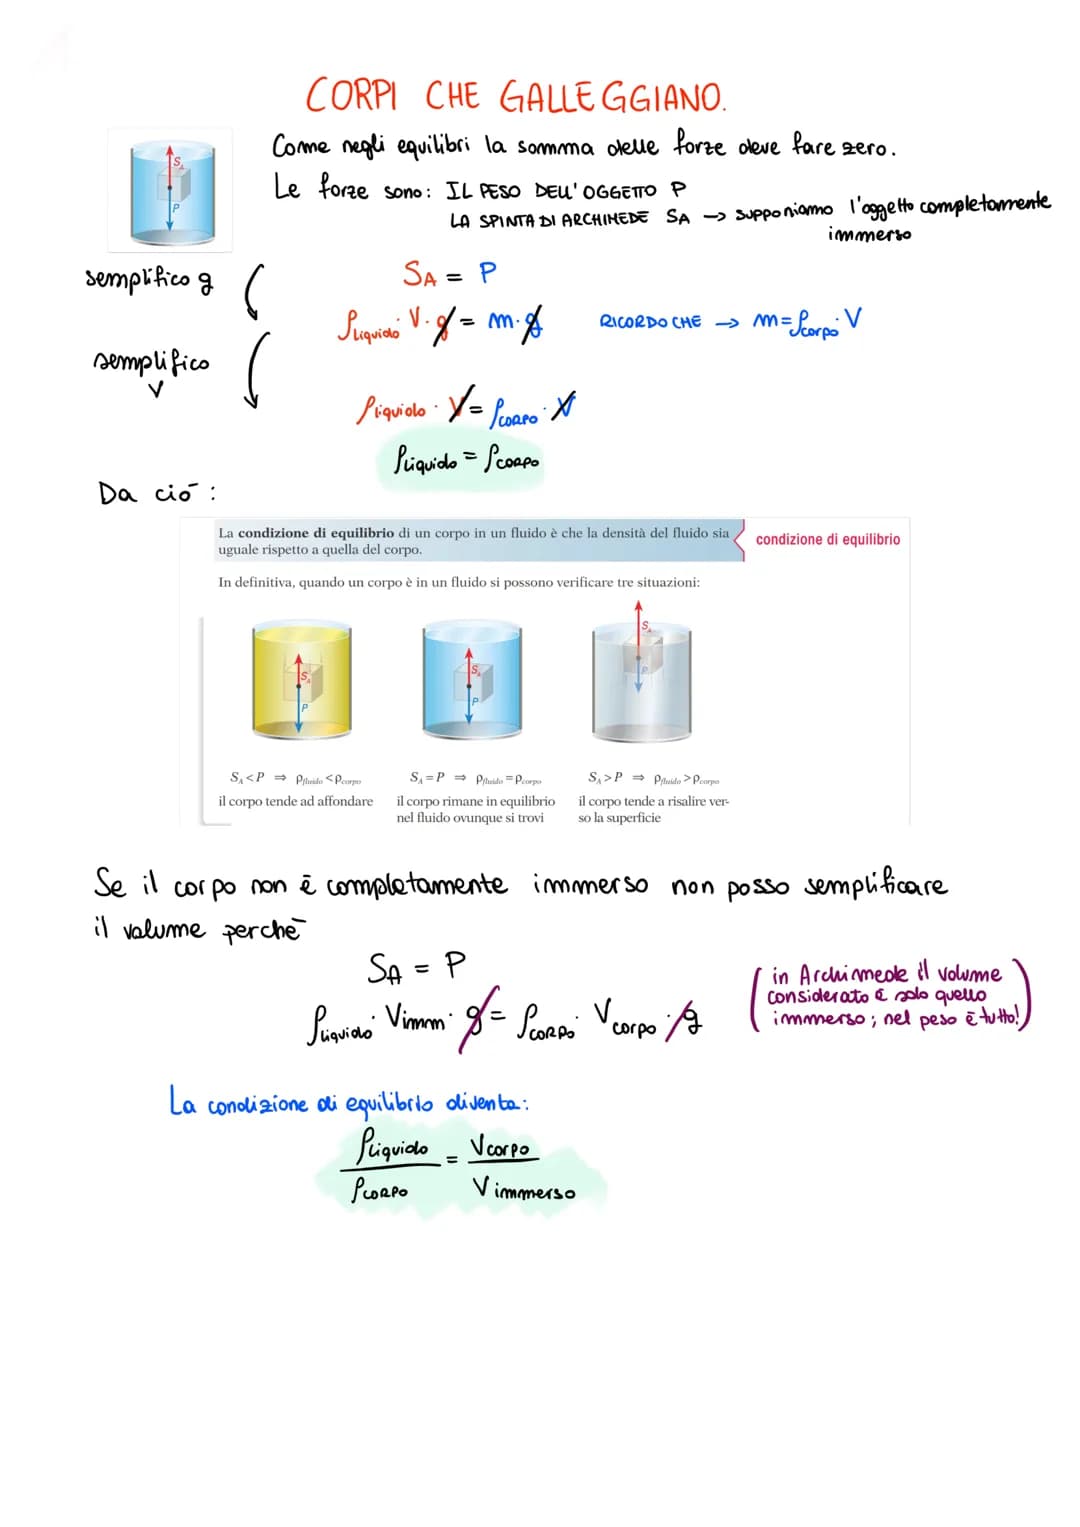 CORPI CHE GALLEGGIANO.
Come negli equilibri la somma delle forze deve fare zero.
Le forze sono: IL PESO DELL'OGGETTO P
LA SPINTA DI ARCHIMEDE SA → supponiamo l'oggetto completamente
immerso
SA
P
semplifico g
SA = P
ρliquido · V · g = m · g RICORDO CHE → m = ρcorpo · V
semplifico
V
ρliquido · V = ρcorpo · V
ρliquido = ρcorpo
Da ciō :
La condizione di equilibrio di un corpo in un fluido è che la densità del fluido sia
uguale rispetto a quella del corpo.
condizione di equilibrio
In definitiva, quando un corpo è in un fluido si possono verificare tre situazioni:
SA
P
SA
P
SA
P
SA < P ⇒ ρfluido < ρcorpo
il corpo tende ad affondare
SA = P ⇒ ρfluido = ρcorpo
il corpo rimane in equilibrio
nel fluido ovunque si trovi
SA > P ⇒ ρfluido > ρcorpo
il corpo tende a risalire ver-
so la superficie
Se il corpo non ē completamente immerso non posso semplificare
il volume perchē
SA = P
ρliquido · Vimm · g = ρcorpo · Vcorpo · g
(in Archimede il volume
considerato ē solo quello
immerso; nel peso ē tutto!)
La condizione di equilibrio diventa:
ρliquido / ρcorpo = Vcorpo / Vimmerso